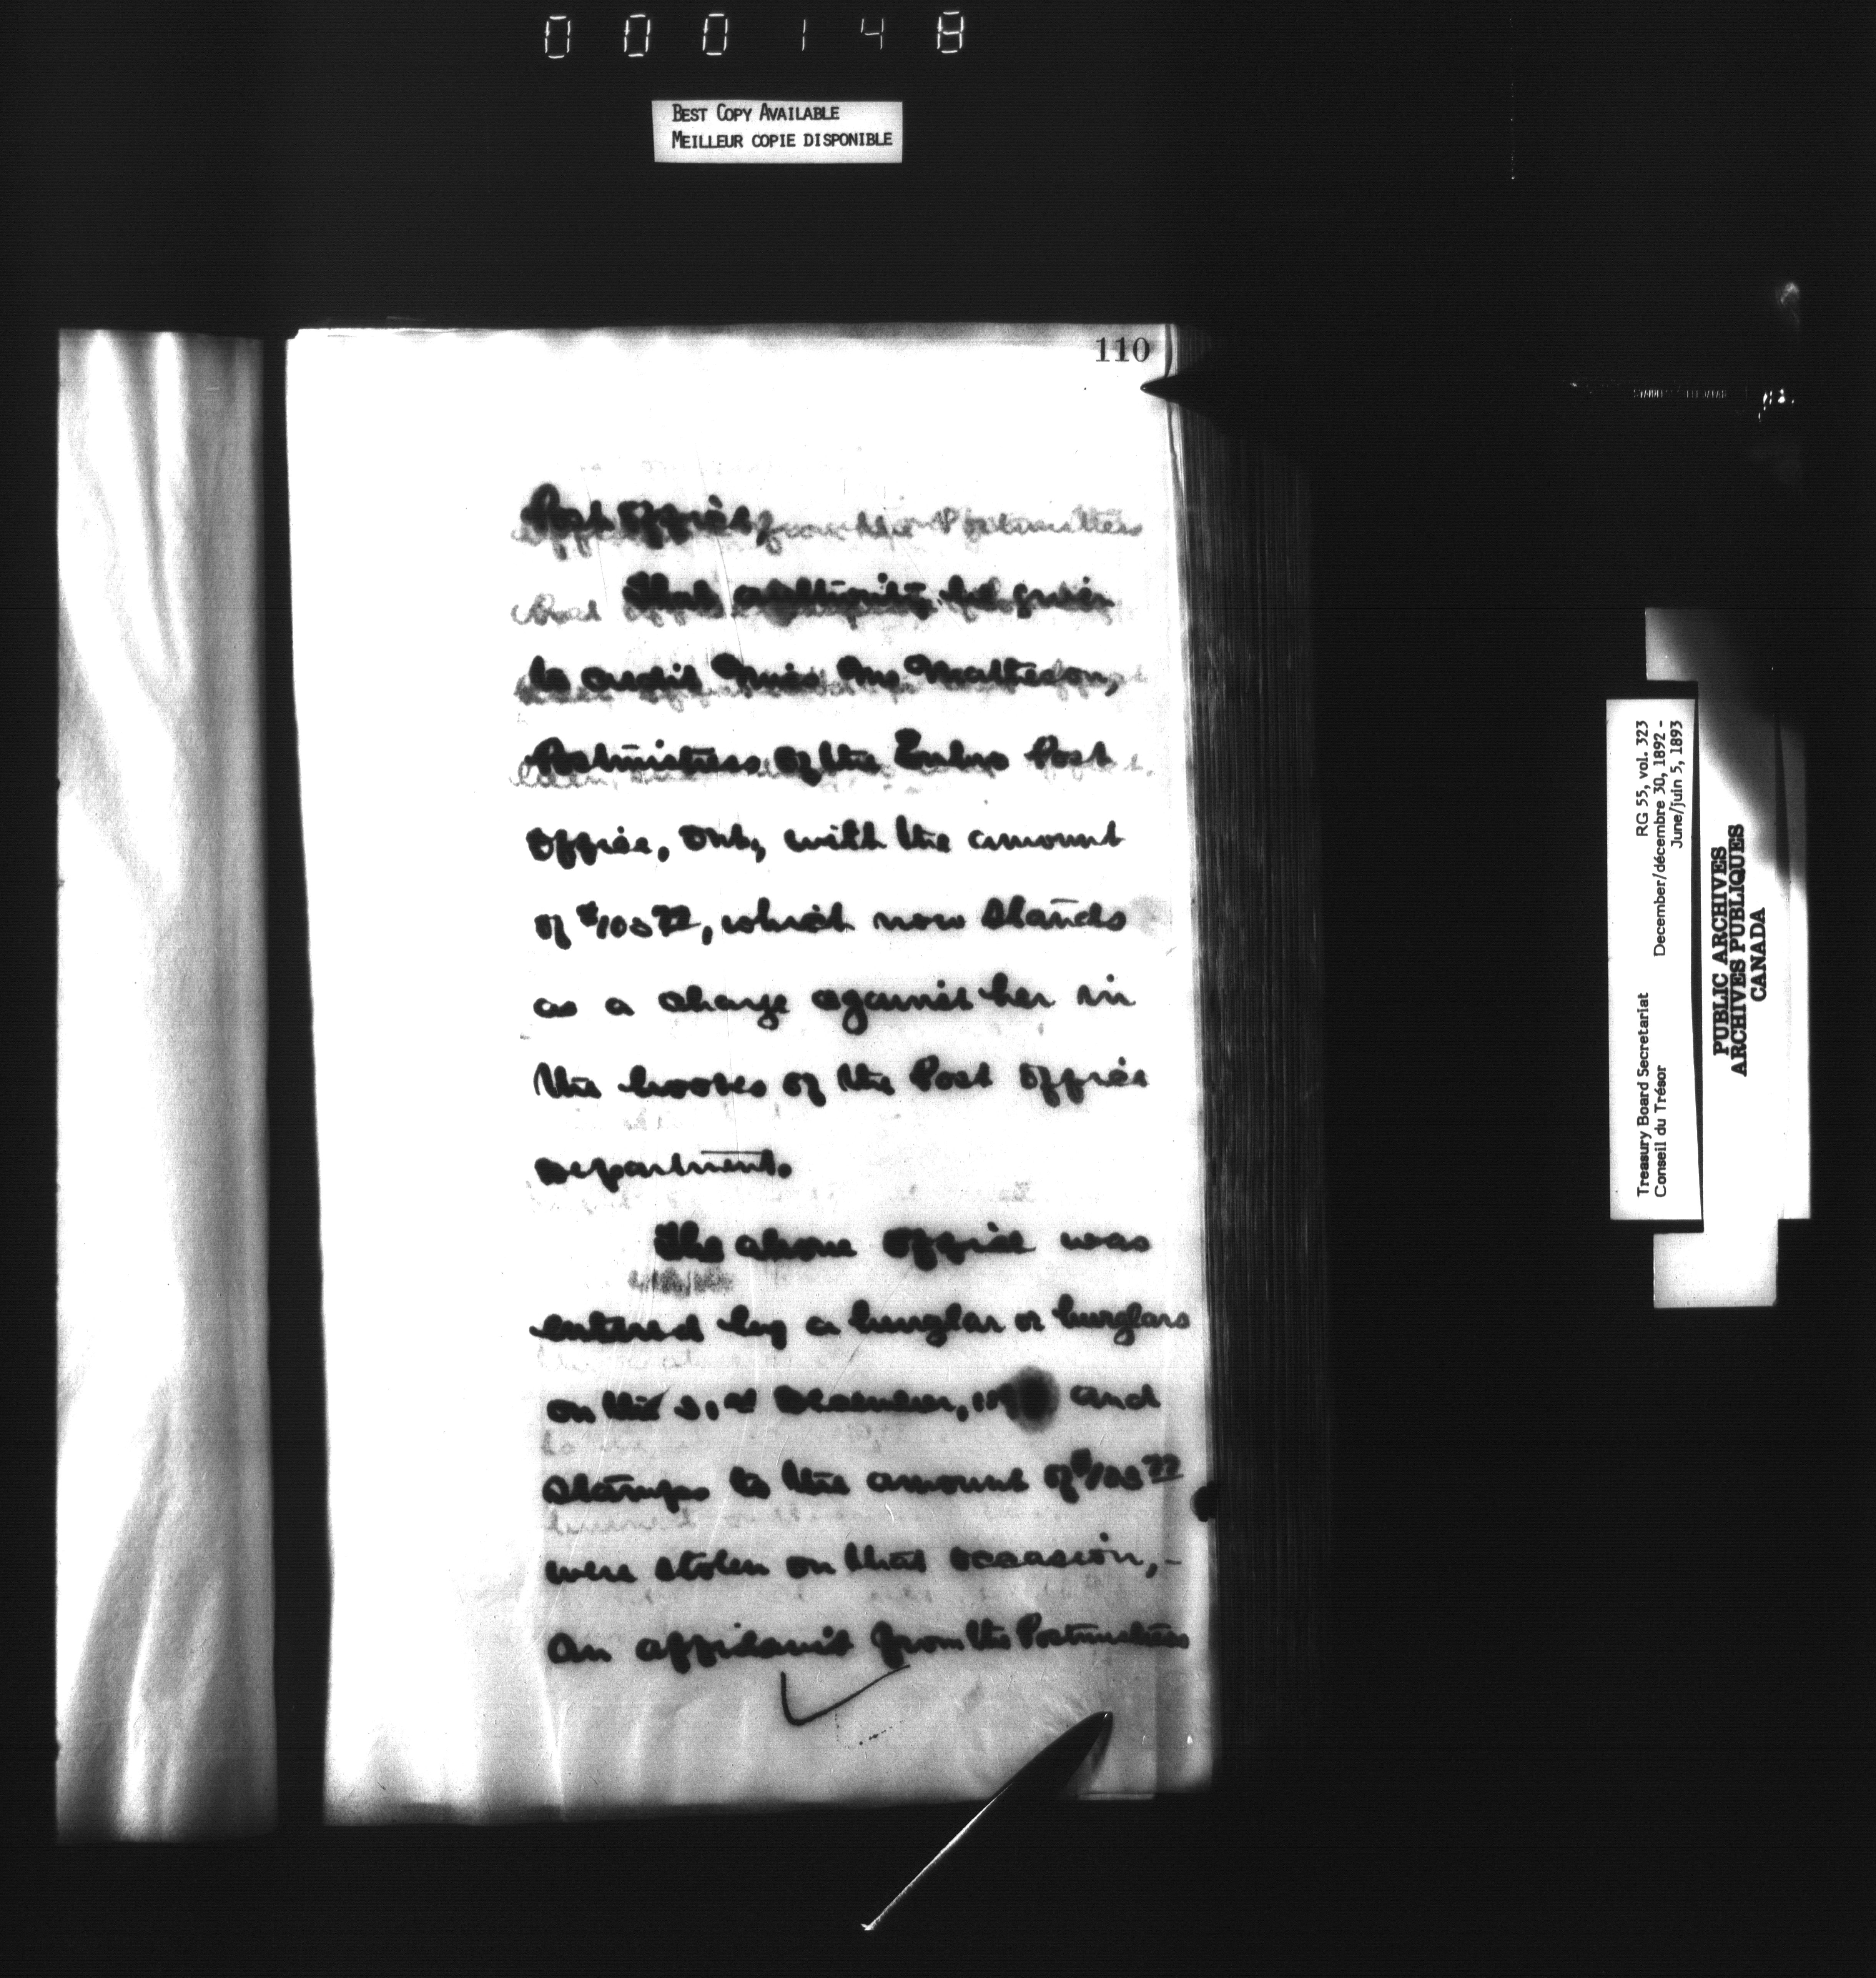 000148
BEST COPY AVAILABLE
MEILLEUR COPIE DISPONIBLE
110
Post Office,
That authority be given
to credit Miss M. Matheson,
Postmistress of the Embro Post
Office, Ont, with the amount
of which now stands
as a charge against her in
the books of the Post Office
Department.
The above office was
entered by a burglar or burglars
on the December, and
stamps to the amount of
were stolen on that occasion,-
An affidavit from the Postmistress
Treasury Board Secretariat RG 55, vol. 323
Conseil du Trésor December/décembre 30, 1892 -
June/juin 5, 1893
PUBLIC ARCHIVES
ARCHIVES PUBLIQUES
CANADA